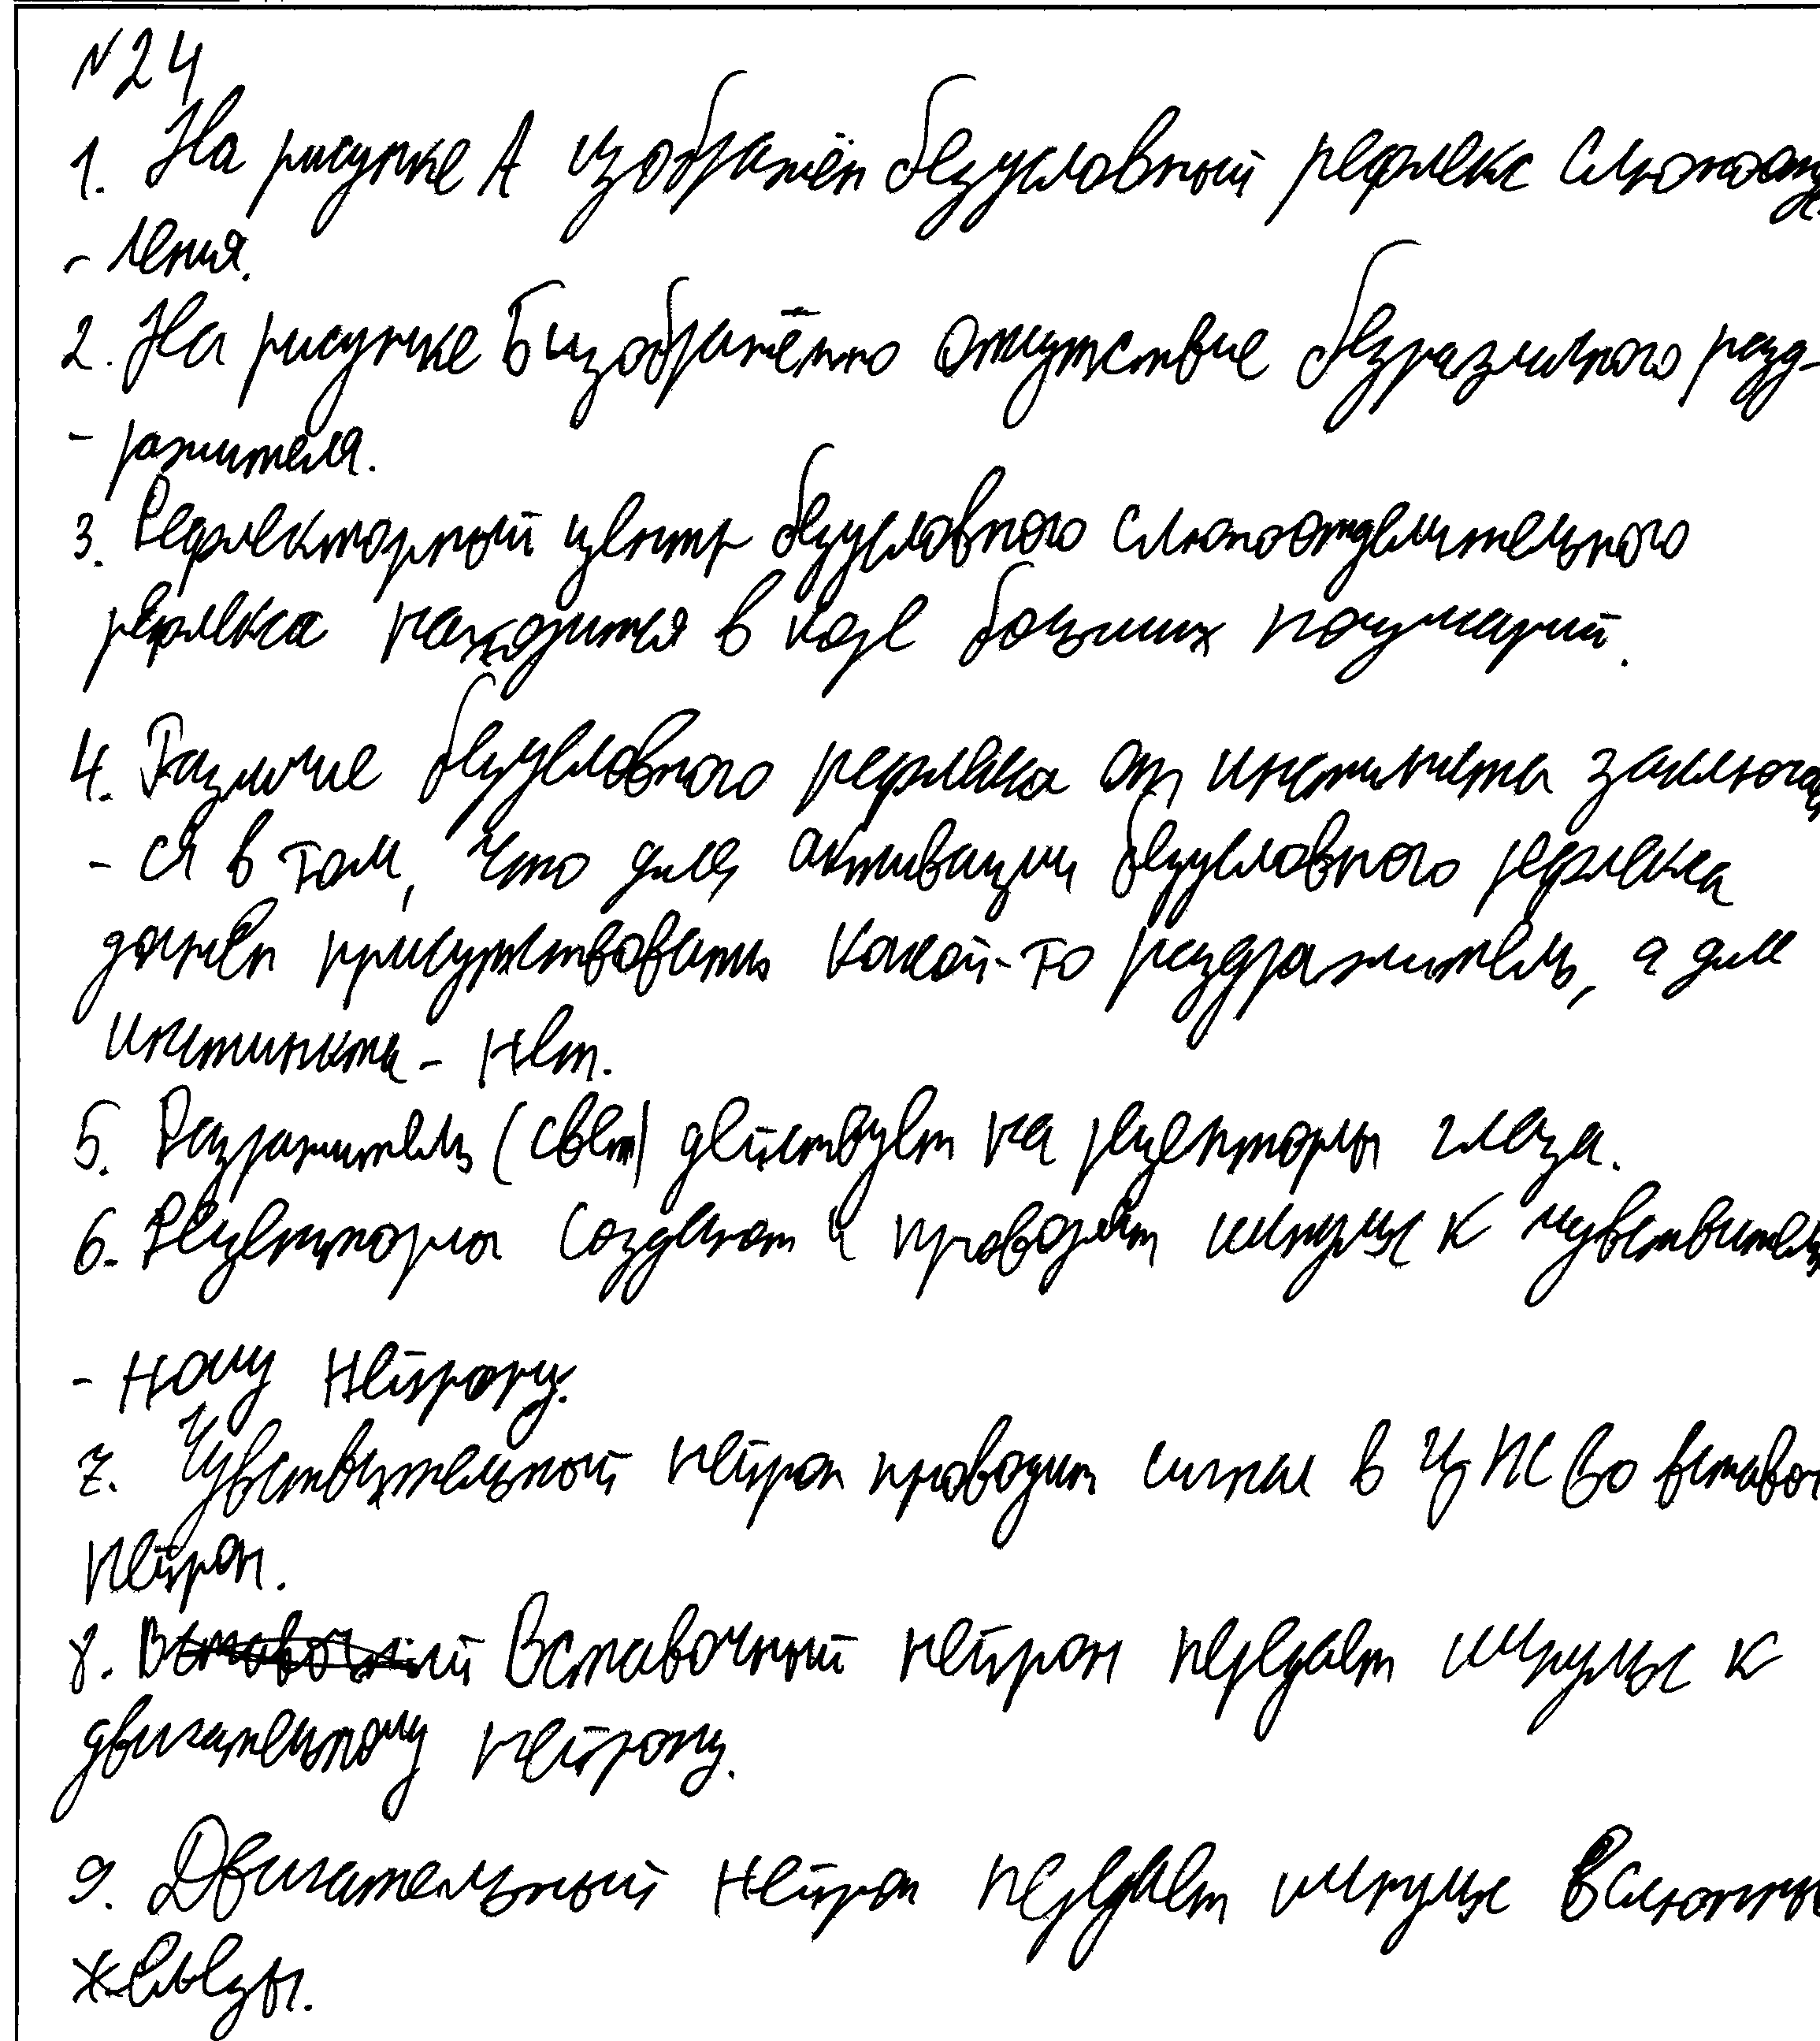 №24
1. На рисунке А изображён безусловный рефлекс слюноотде
- ления.
2. На рисунке Б изображёно отсутствие безразличного разд-
- ражителя.
3. Рефлекторный центр безусловного слюноотделительного
рефлекса находится в коре больших полушарий.
4. Различие безусловного рефлекса от инстинкта заключает
- ся в том, что для активации безусловного рефлекса
должен присутствовать какой-то раздражитель, а для
инстинкта - нет.
5. Разражитель (свет) действует на рецепторы глаза.
6. Рецепторы создают и проводят импульс к чувствитель
- ному нейрону.
7. Чувствительный нейрон проводит сигнал в ЦНС во вставоч
нейрон.
8. Вставочный нейрон передает импульс к
двигательному нейрону.
9. Двигательный нейрон передает импульс в слюнные
железы.